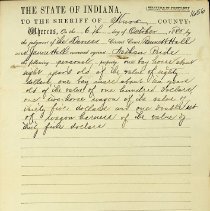 THE STATE OF INDIANA,
TO THE SHERIFF OF Monroe COUNTY:
Whereas, on the 6th day of October 1880 by
the judgment of the Monroe Circuit Court Hall
and James Hall recovered against
the following personal property one bay horse about
eight years old of the value of eighty
dollars one bay mare about ten years
old of the value of one hundred dollars
one two-horse wagon of the value of
thirty five dollars and one double set
of wagon harness of the value of
thirty five dollars